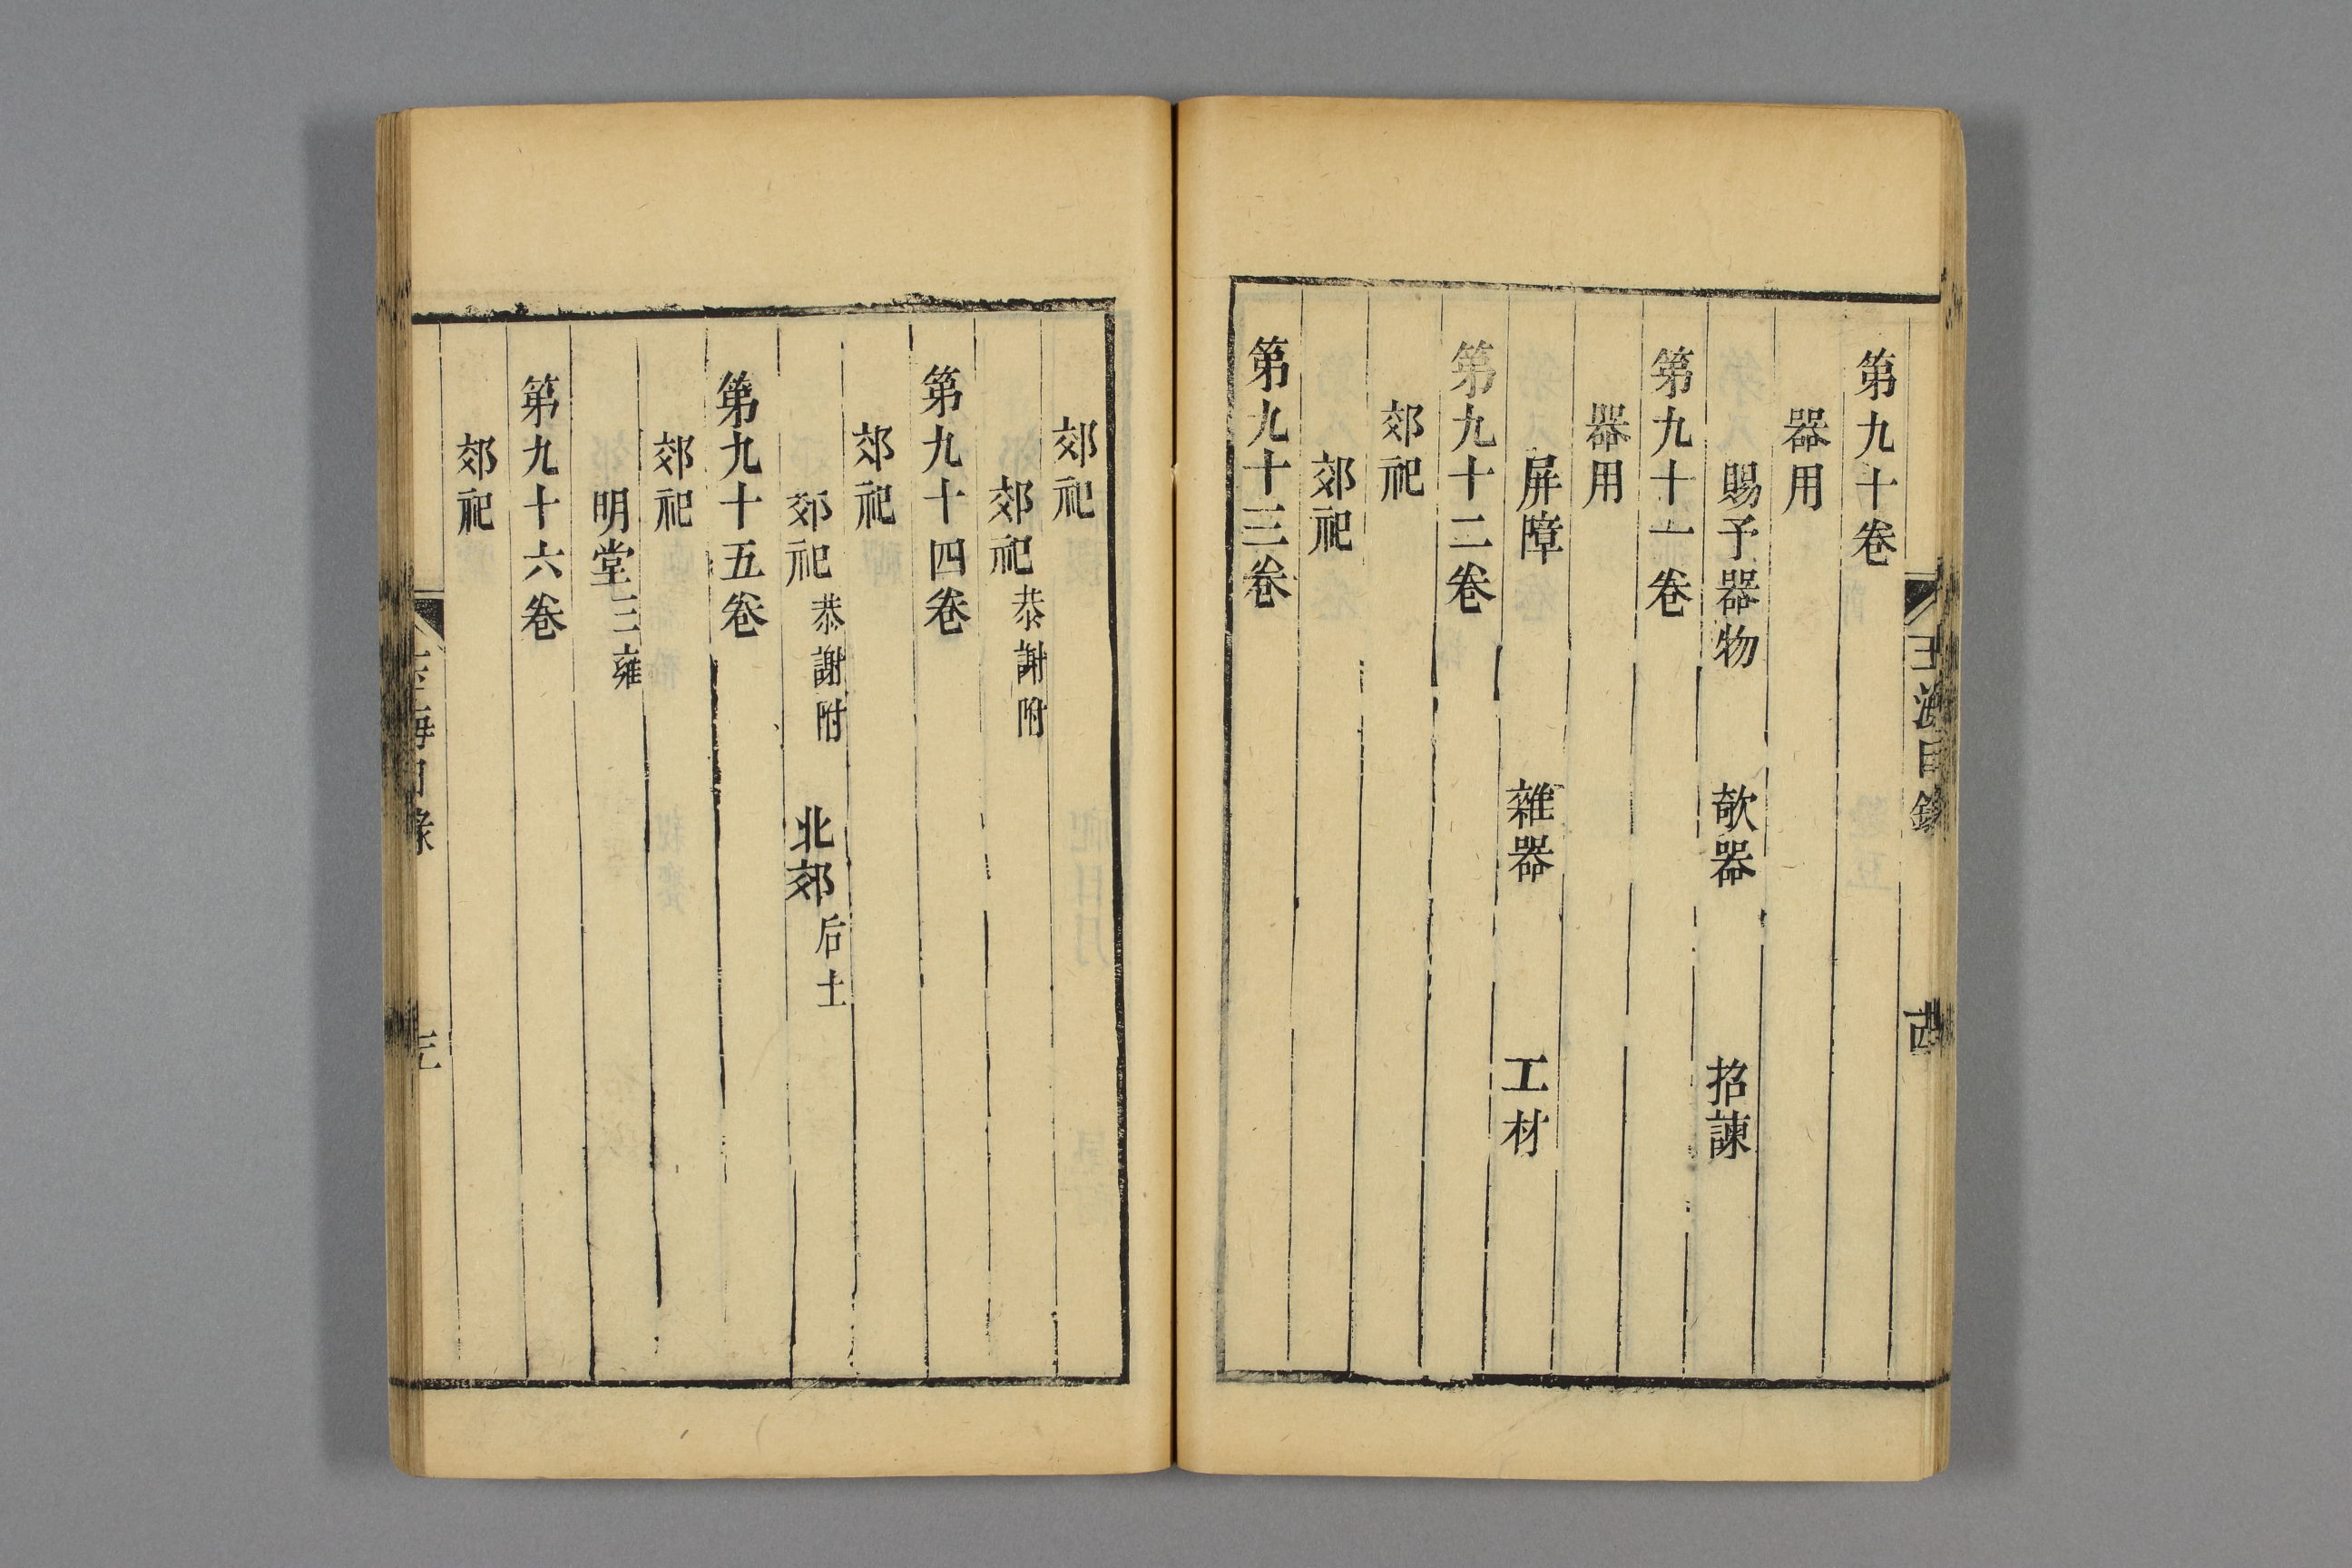 第九十卷
器用
賜予器物 欹器 招諫
第九十一卷
器用
屏障 雜器 工材
第九十二卷
郊祀
郊祀
第九十三卷
郊祀
郊祀恭謝附
第九十四卷
郊祀
郊祀恭謝附 北郊后土
第九十五卷
郊祀
明堂三雍
第九十六卷
郊祀
玉海目錄